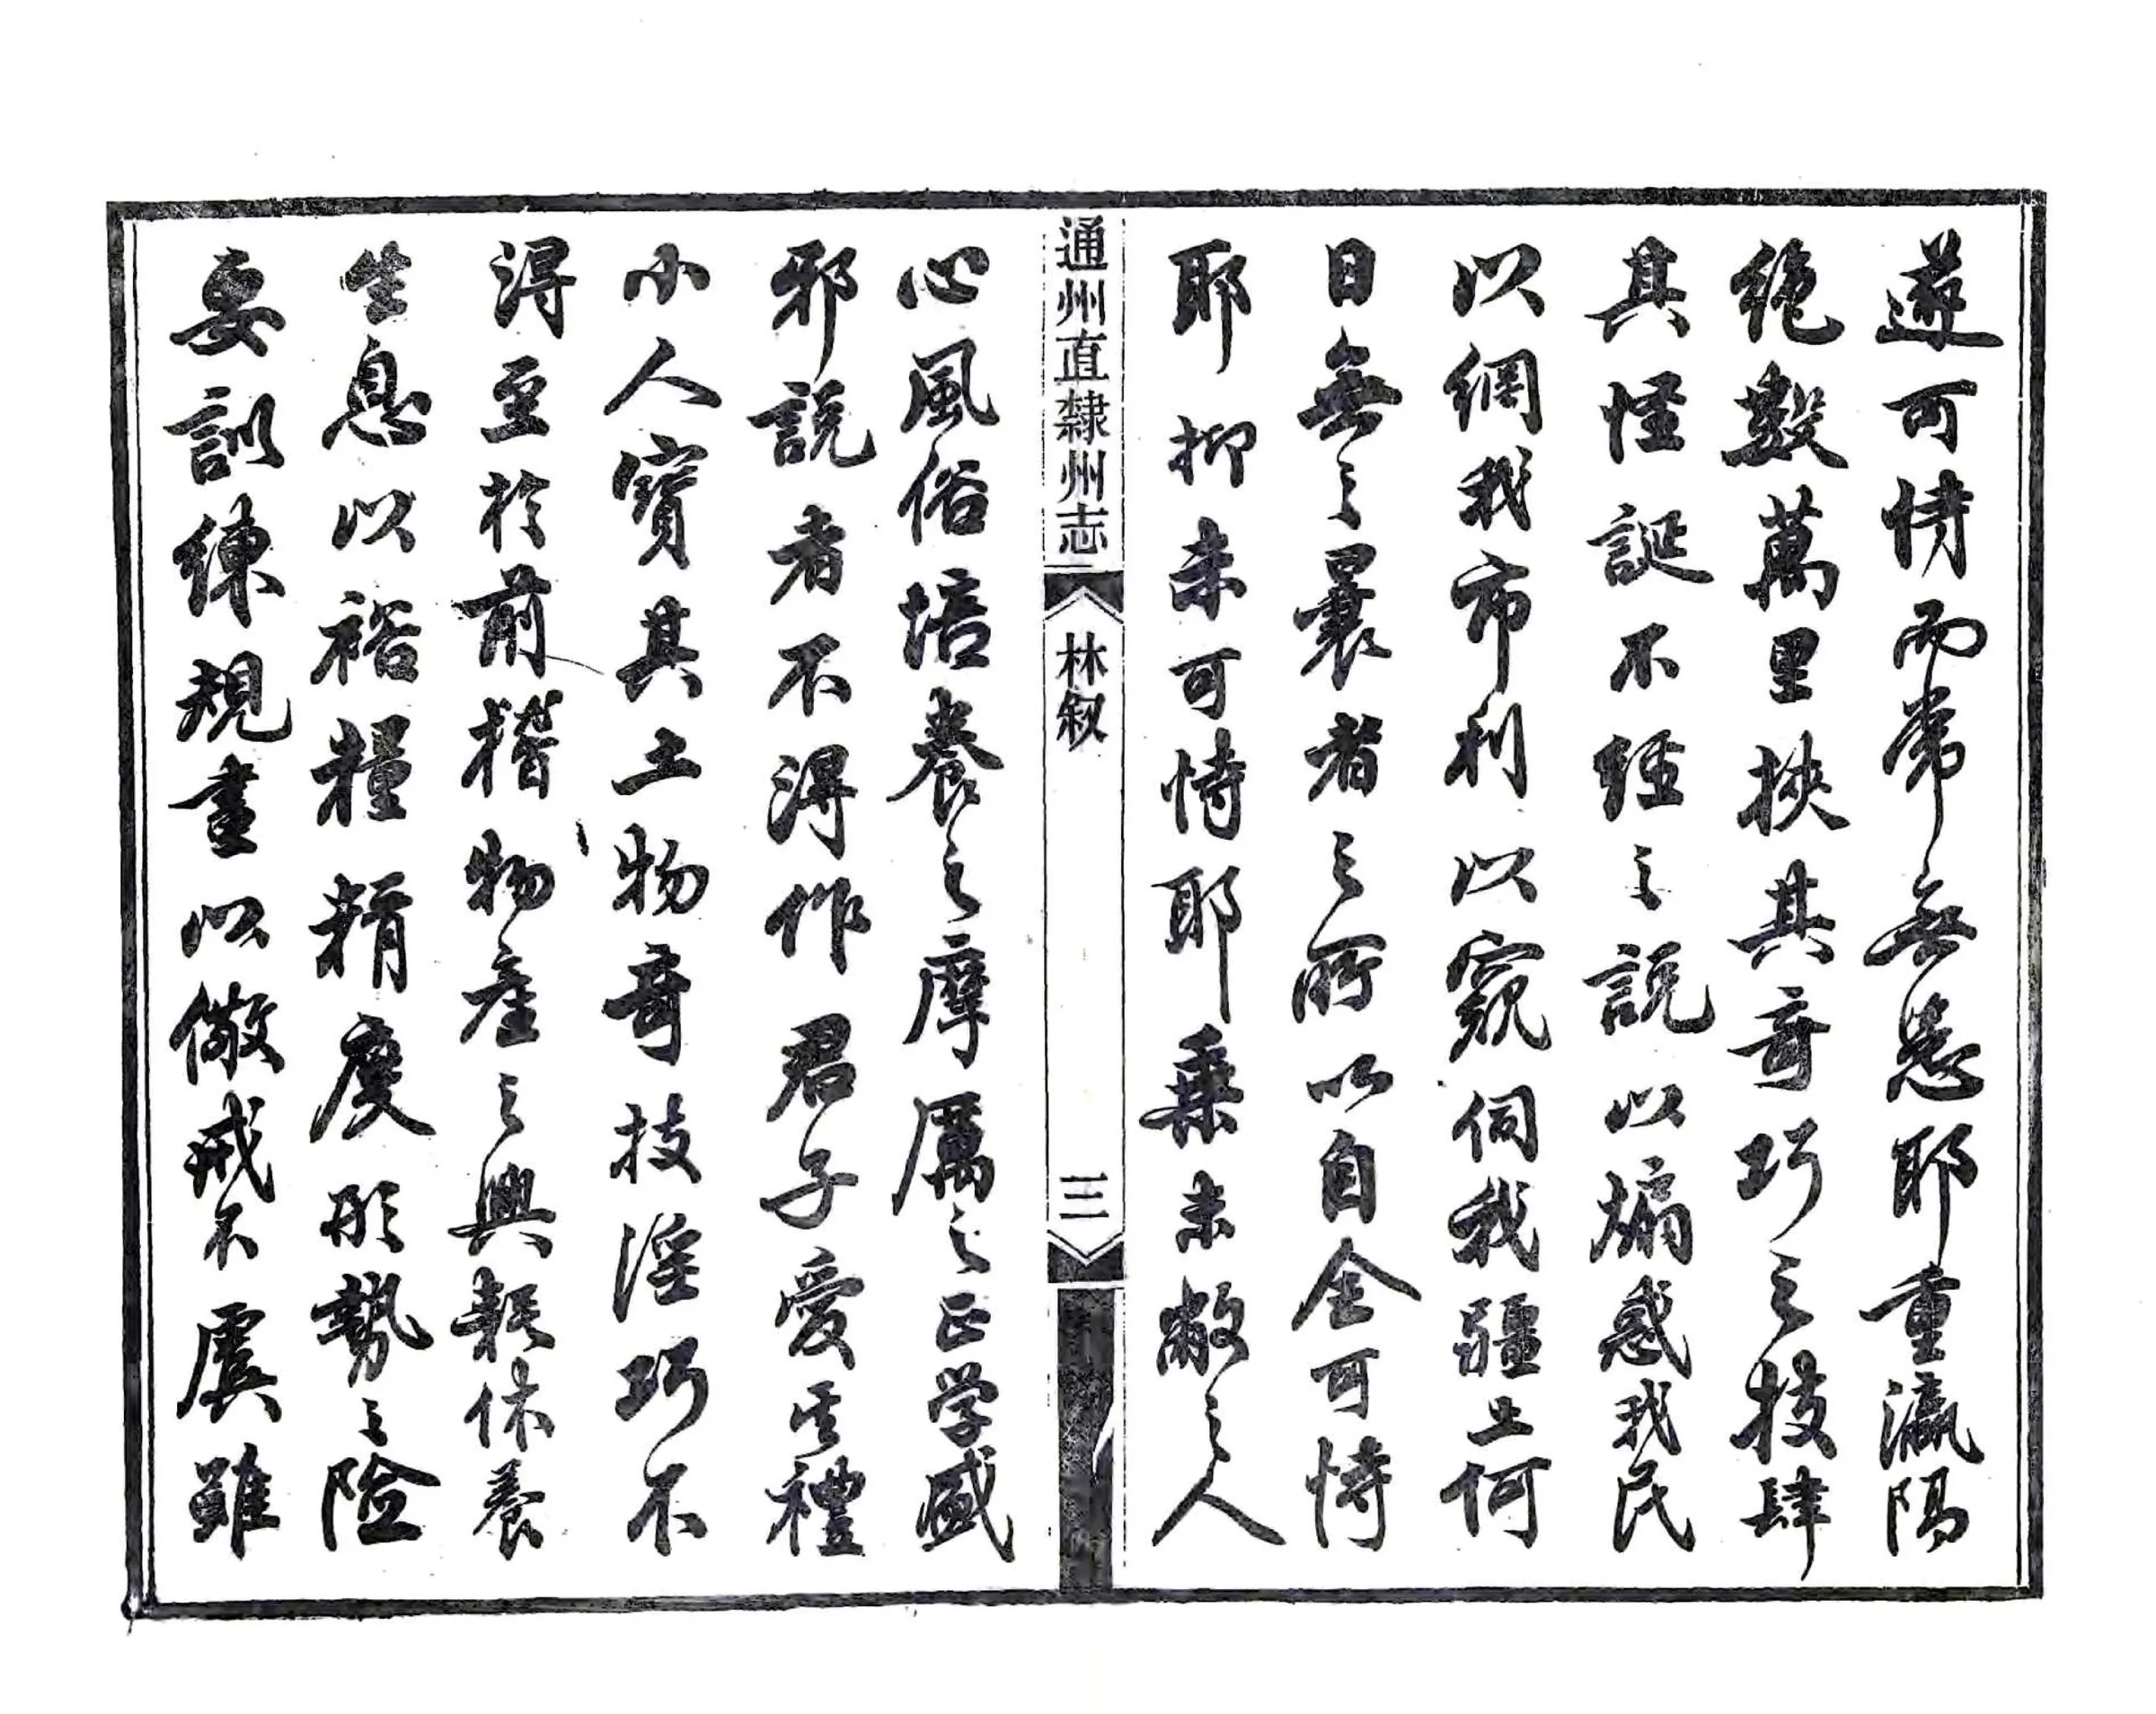 遂可恃而常無恙耶重瀛隔
絶數萬里挾其奇巧之技肆
其怪誕不經之說以煽惑我民
以網我市利以窺伺我疆土何
日無之曩者之所以自全可恃
耶抑未可恃耶乗未敝之人
通州直隸州志
林敘
三
心風俗培養之摩厲之正学盛
邪說者不得作君子愛其禮
小人寳其土物奇技淫巧不
得至於前稽物產之興耗休養
生息以裕糧糈度形勢之險
要訓練規畫以儆戒不虞雖